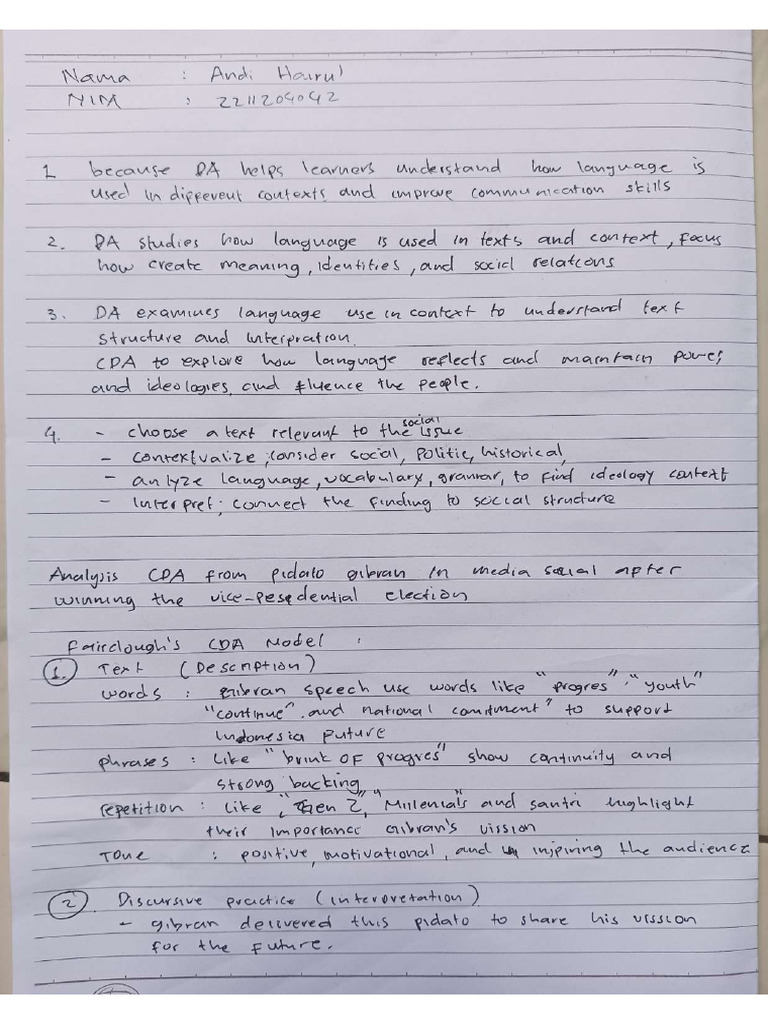 Nama : Andi Hairul
NIM : 2211204042
1 because DA helps learners understand how language is
used in different contexts and improve communication skills
2. DA studies how language is used in texts and context, focus
how create meaning, identities, and social relations
3. DA examines language use in context to understand text
structure and interpration.
CDA to explore how language reflects and maintain power,
and ideologies, and fluence the people.
4. - choose a text relevant to the social issue
- contextualize ; consider social, politic, historical,
- anlyze language, vocabulary, grammar, to find ideology context
- Interpret ; connect the finding to social structure
Analysis CDA from pidato gibran in media social after
winning the vice-presedential election
Fairclough's CDA Model :
1. Text (Description)
words : Gibran speech use words like "progres", "youth"
"continue", and national comitment" to support
Indonesia future
phrases : Like "brink OF progres" show continuity and
strong backing
repetition : Like, "Gen Z", "Millenials" and santri highlight
their importance Gibran's vission
Tone : positive, motivational, and injpiring the audience
2. Discursive practice (interpretation)
- gibran delivered this pidato to share his vission
for the future.